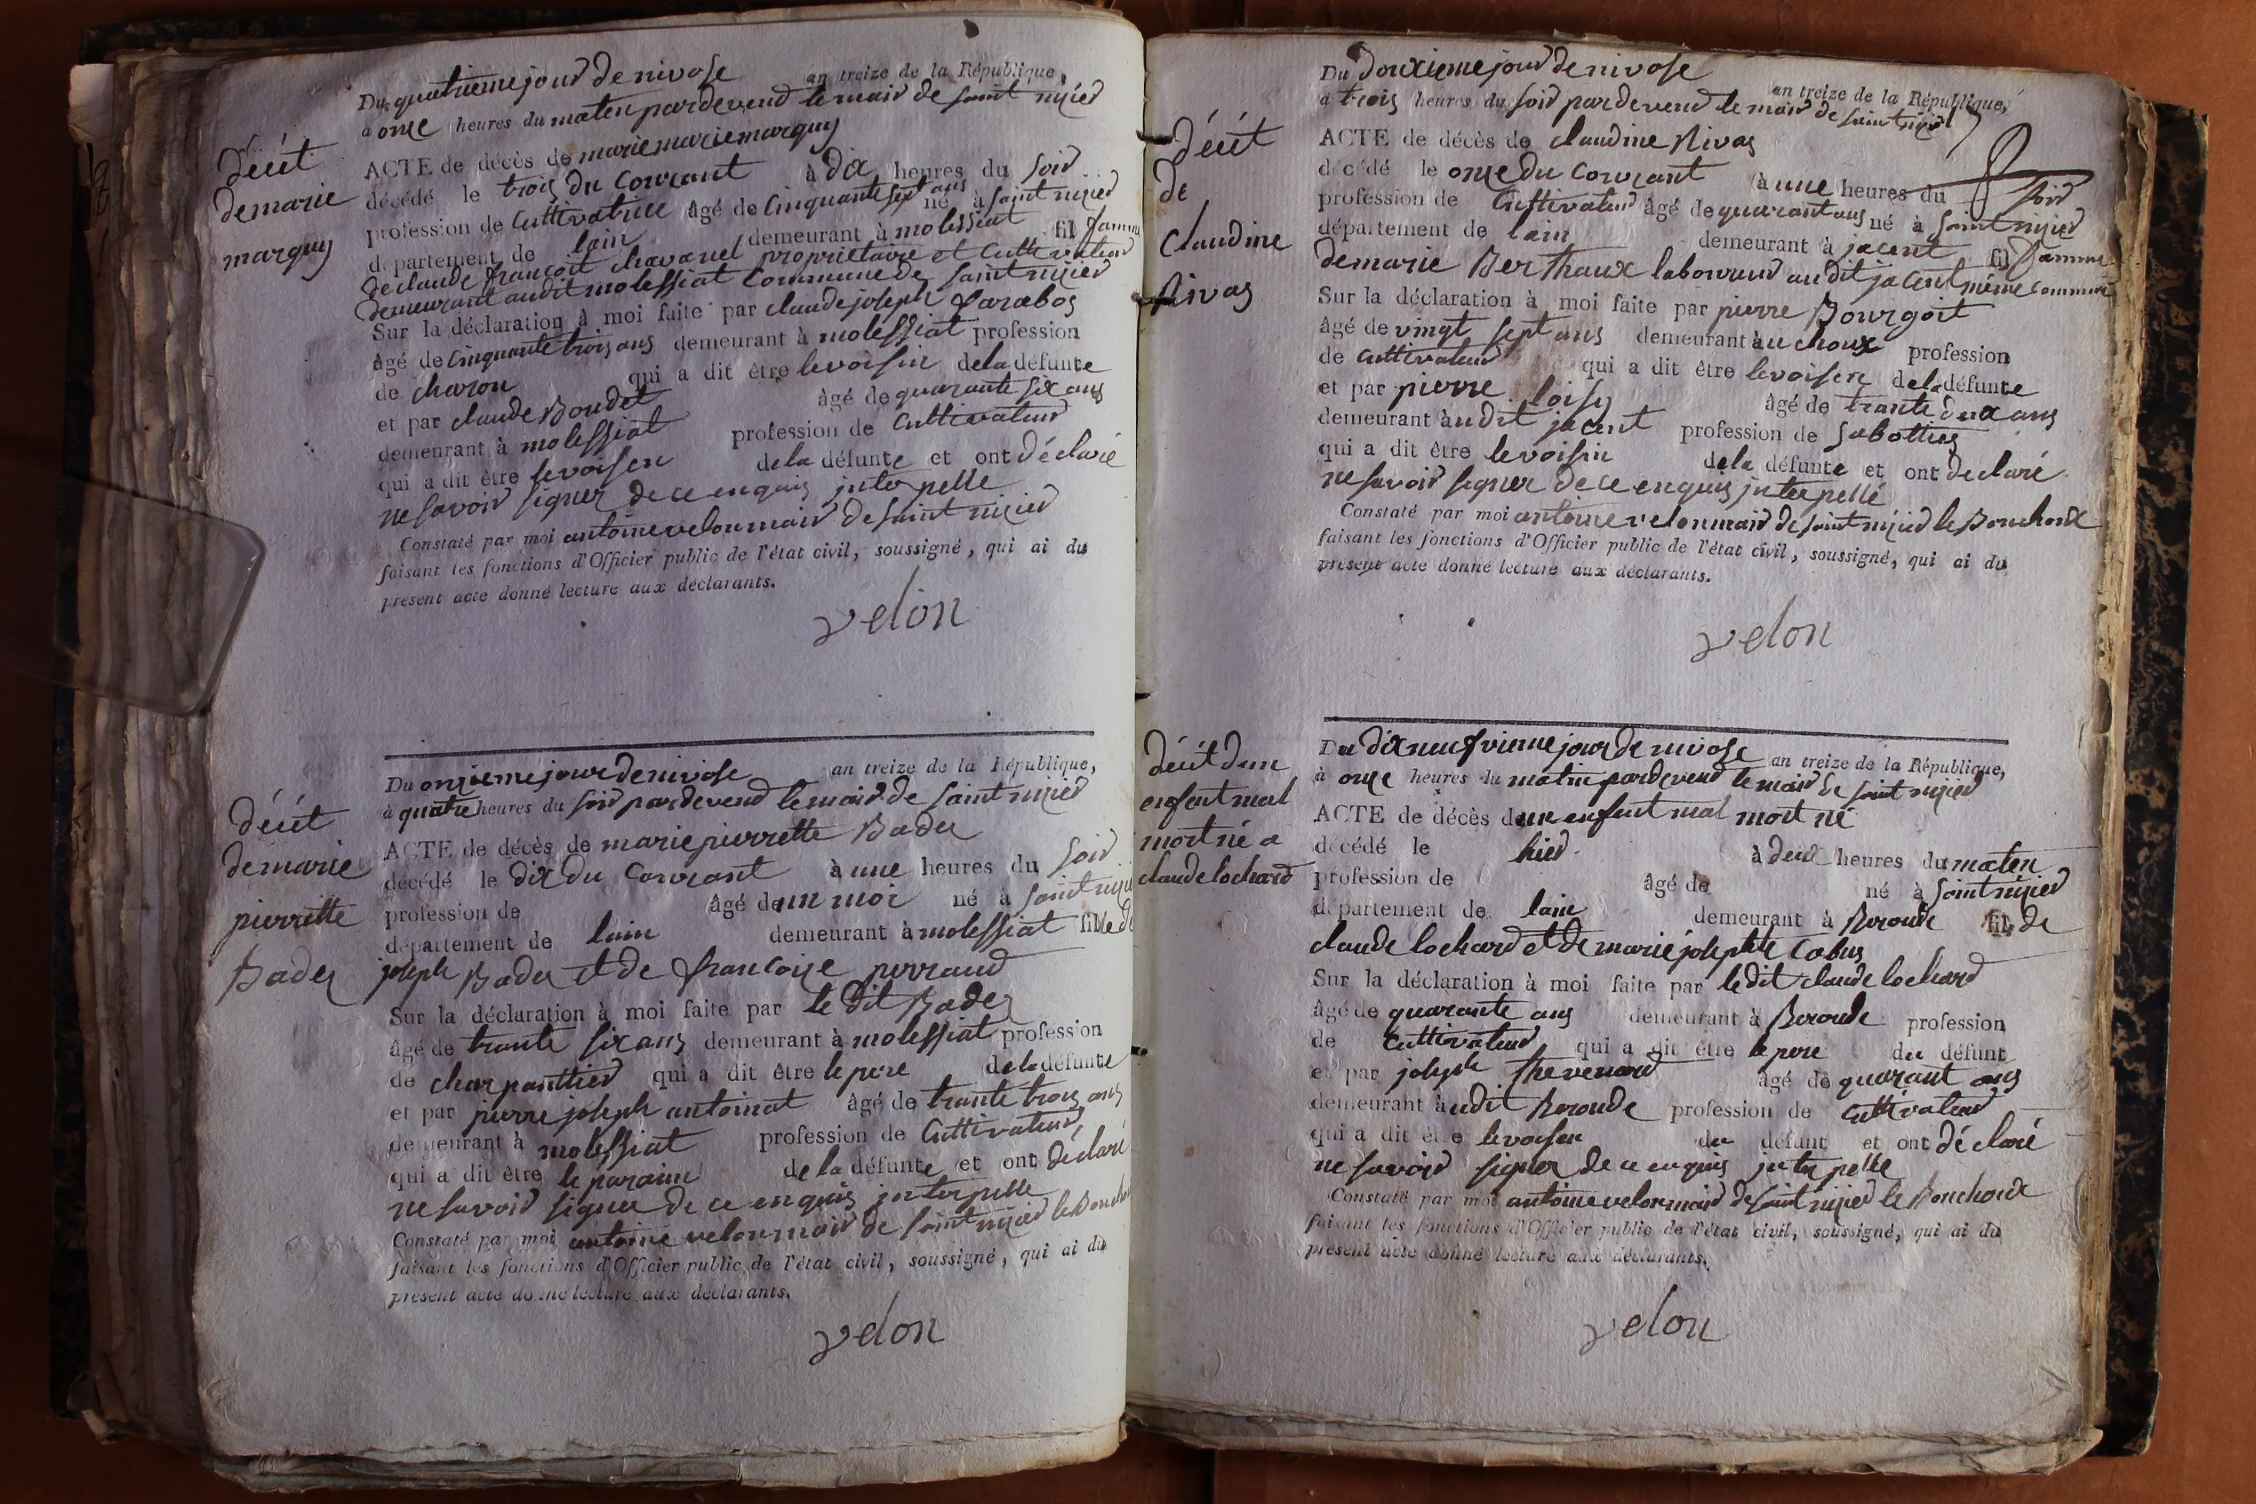 décét
de marie
marquis
Du quatrieme jour de nivose an treize de la République,
a onze heures du maten pardevend le maid de saint nizied
ACTE de décès de marie marie marquis
décédé le trois du Courant à dix heures du soid
profession de Cultivatrice âgé de Cinquante sept ans né à saint nizied
département de lain demeurant à molessiat fil famme
de claude françoit chavanel proprietaire et Cultivateur
demeurant audit molessiat Commune de saint nizied
Sur la déclaration à moi faite par claude joseph
âgé de Cinquante trois ans demeurant à molessiat profession
de charon qui a dit être levoisin dela défunte
et par claude Boudet âgé de quarante six ans
demeurant à molessiat profession de Cultivateur
qui a dit être levoisen dela défunte et ont déclaré
ne savoir signer de ce enquis jnterpelle
Constaté par moi antoine velon maid de saint nizied
faisant les fonctions d'Officier public de l'état civil, soussigné, qui ai du
présent acte donné lecture aux déclarants.
velon
décét
de marie
pierrette
Bader
Du onzieme jour de nivose an treize de la République,
à quatre heures du soid pardevend le maid de saint nizied
ACTE de décès de marie pierrette Bader
décédé le dix du Courant à une heures du soid
profession de âgé de un moi né à saint nizied
département de lain demeurant à molessiat fille de
joseph Bader et de francoise perraud
Sur la déclaration à moi faite par le dit Bader
âgé de trante six ans demeurant à molessiat profession
de charpanttied qui a dit être le pere dela défunte
et par pierre joseph antoinat âgé de trante trois ans
demeurant à molessiat profession de Cultivateur
qui a dit être le parain de la défunte et ont déclaré
ne savoir signer de ce enquis jnterpelle
Constaté par moi antoine velon maid de saint nizied le Bouchoux
faisant les fonctions d'Officier public de l'état civil, soussigné, qui ai du
présent acte donné lecture aux déclarants.
velon
décét
de
Claudine
Nivas
Du douxieme jour de nivose an treize de la République,
à trois heures du soid pardevend le maid de saint nizied
ACTE de décès de claudine Nivas
décédé le onze du Courant à une heures du soid
profession de Cultivateur âgé de quarant ans né à saint nizied
département de lain demeurant à jacent fil famme
de marie Berthaux laboureur audit jacent même Commune
Sur la déclaration à moi faite par pierre Bourgoit
âgé de vingt sept ans demeurant au choux profession
de Cultivateur qui a dit être levoisen dela défunte
et par pierre loisy âgé de trante deux ans
demeurant audit jacent profession de sabottier
qui a dit être levoisin dela défunte et ont déclaré
ne savoir signer de ce enquis jnterpellé
Constaté par moi antoine velon maid de saint nizied le Bouchoux
faisant les fonctions d'Officier public de l'état civil, soussigné, qui ai du
présent acte donné lecture aux déclarants.
velon
décét dun
enfent mal
mort né a
claude lochard
Du dix neufvieme jour de nivose an treize de la République,
à onze heures du matin pardevend le maid de saint nizied
ACTE de décès dun enfent mal mort né
décédé le hier à deux heures du maten
profession de âgé de né à saint nizied
département de lain demeurant à Reronde fils de
claude lochard et de marie josephte Cobus
Sur la déclaration à moi faite par le dit claude lochard
âgé de quarante ans demeurant à Reronde profession
de Cultivateur qui a dit être le pere du défunt
et par joseph thevenard âgé de quarant ans
demeurant audit Reronde profession de Cultivateur
qui a dit être levoisen du défunt et ont déclaré
ne savoir signer de ce enquis jnterpelle
Constaté par moi antoine velon maid de saint nizied le Bouchoux
faisant les fonctions d'Officier public de l'état civil, soussigné, qui ai du
présent acte donné lecture aux déclarants.
velon